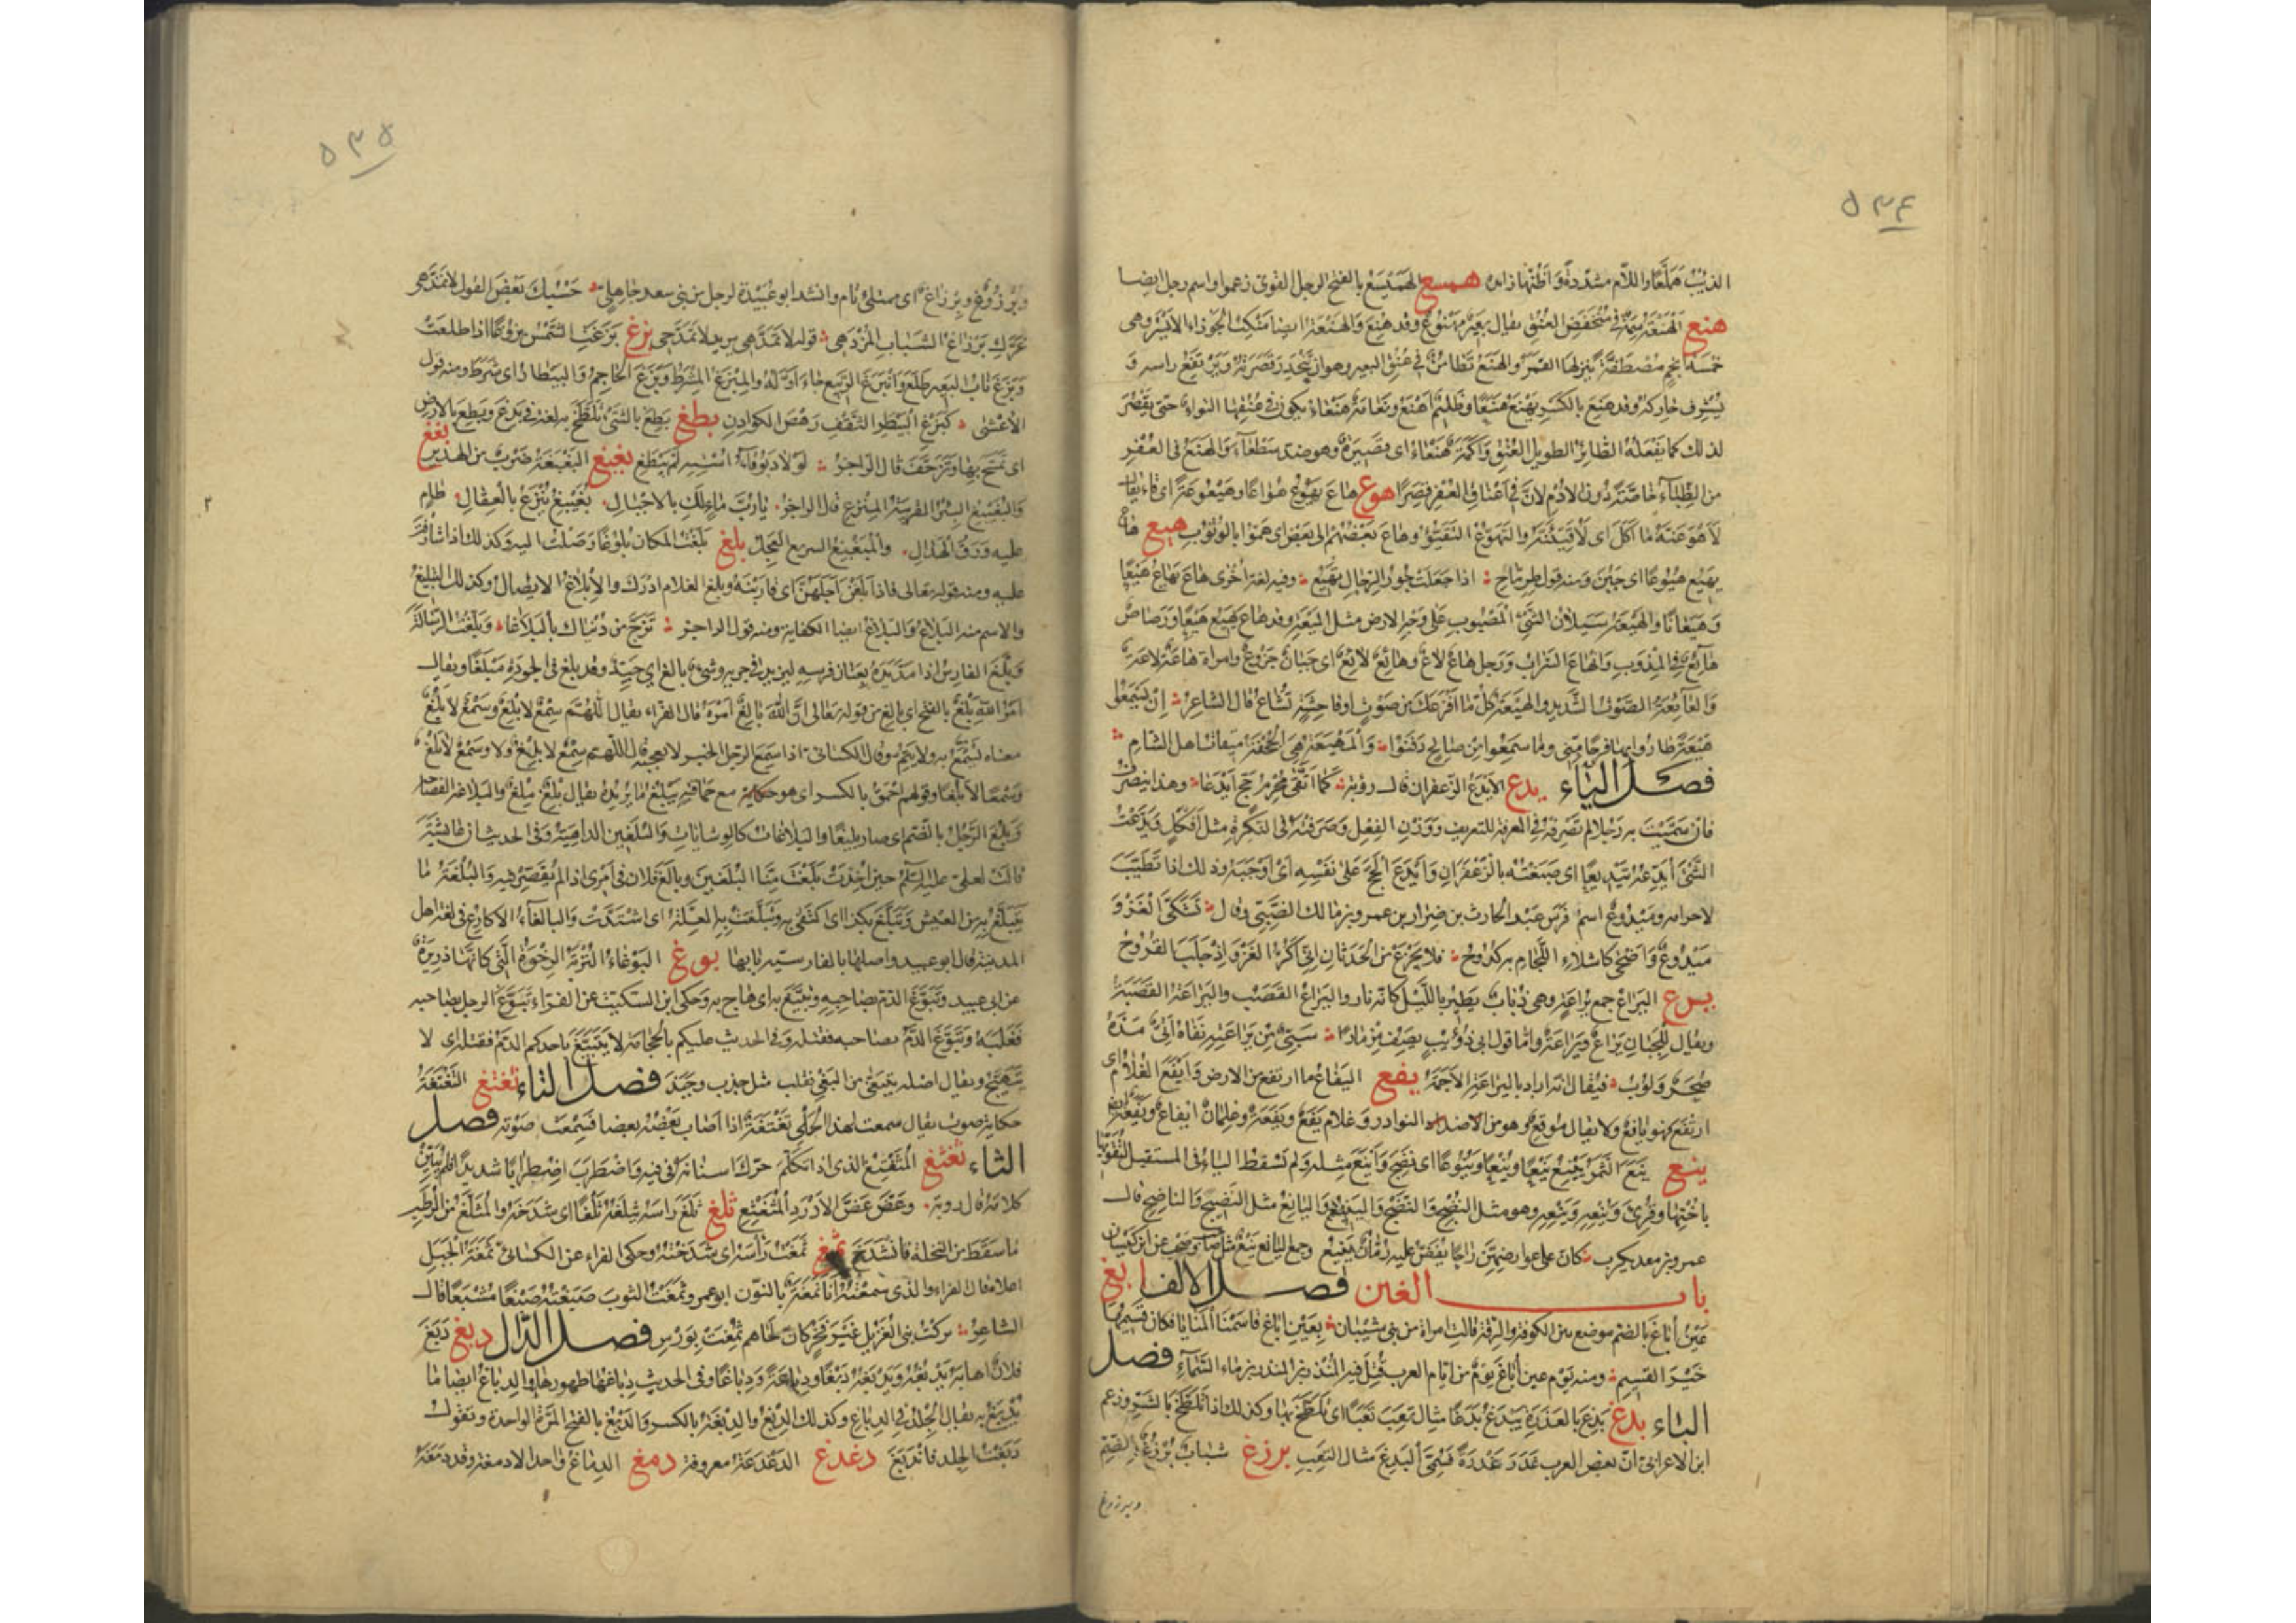 ٥٣٤
الذئب هملعا واللام مشددة واظنها زائدة همسع الهميسع بالفتح الرجل القوى زعموا واسم رجل ايضا
هنع الهنعة سمة فى منخفض العنق يقال بعير مهنوع وقد هنع والهنعة ايضا منكب الجوزاء الايسر وهى
خمسة انجم مصطفة ينزلها القمر والهنع تطامن فى عنق البعير وهو ان ينحدر قصرته ويرتفع راسه و
يشرف حاركه وقد هنع بالكسر يهنع هنعا وظليم اهنع ونعامة هنعاء يكون فى عنقها التواء حتى يقصر
لذلك كما يفعله الطائر الطويل العنق واكمة هنعاء اى قصيرة وهو ضد سطعاء والهنع فى العفر
من الظباء خاصة دون الادم لان فى اعناق العفر قصرا هوع هاع يهوع هواعا وهيعوعة اى قاء يقال
لاهوعنه ما اكل اى لاقيئنه والتهوع التقيؤ وهاع بعضهم الى بعض اى هموا بالوثوب هيع هاع
يهيع هيوعا اى جبن ومنه قول طرماح اذا جعلت خور الرجال تهيع وفيه لغة اخرى هاع يهاع هيعا
وهيعانا والهيعة سيلان الشئ المصبوب على وجه الارض مثل الميعة وقد هاع يهيع هيعا ورصاص
هائع فى المذوب والهاع السراب ورجل هاع لاع وهائع لائع اى جبان جزوع وامراة هاعة لاعة
والهائعة الصوت الشديد والهيعة كل ما افزعك من صوت او فاحشة تشاع قال الشاعر ان يسمعوا
هيعة طاروا بها فرحا منى وما سمعوا من صالح دفنوا والمهيعة هى الجحفة ميقات اهل الشام
فصل الياء يدع الايدع الزعفران قال رؤبة كما اتقى محرم حج ايدعا وهذا ينصرف
فان سميت به رجلا لم تصرفه فى المعرفة للتعريف ووزن الفعل وصرفته فى النكرة مثل افكل ويدعت
الشئ ايدعه تيديعا اى صبغته بالزعفران وايدع الحج على نفسه اى اوجبه وذلك اذا تطيب
لاحرامه وميدوع اسم فرس عبد الحارث بن ضرار بن عمرو بن مالك الضبى وقال تشكى الغزو
ميدوع واضحى كاشلاء اللجام به كدوح فلا تجزع من الحدثان انى اكر الغزو اذ جلب القروح
يرع اليراع جمع يراعة وهى ذباب يطير بالليل كانه نار واليراع القصب واليراعة القصبة
ويقال للجبان يراع ويراعة واما قول ابى ذؤيب يصف مزمارا سبى من يراعته نفاه اتى مده
صحر ولوب فيقال انه اراد باليراعة الاجمة يفع اليفاع ما ارتفع من الارض وايفع الغلام اى
ارتفع فهو يافع ولا يقال موفع وهو من النوادر وغلام يفع ويفعة وغلمان ايفاع ويفعة ايضا
ينع ينع الثمر يينع ينعا وينعا وينوعا اى نضج واينع مثله ولم تسقط الياء فى المستقبل لتقويها
باختها وقرئ وينعه وينعه وهو مثل النضج والنضج والينيع واليانع مثل النضيج والناضج قال
عمرو بن معديكرب كان على عوارضهن راحا يفض عليه رمان ينيع وجمع اليانع ينع مثل صاحب وصحب عن ابن كيسان
باب الغين فصل الالف ابغ
عين اباغ بالضم موضع بين الكوفة والرقة قالت امراة من بنى شيبان بعين اباغ قاسمنا المنايا فكان قسيمها
خير القسيم ومنه يوم عين اباغ يوم من ايام العرب قتل فيه المنذر بن المنذر بن ماء السماء فصل
الباء بدغ بدغ بالعذرة يبدغ بدغا مثال تعب تعبا اى تلطخ بها وكذلك اذا تلطخ بالشر وزعم
ابن الاعرابى ان بعض العرب عذر عذرة فسمى البدغ مثال التعب برزغ شباب برزغ بالضم
وبرزوغ
٥٣٥
وبرزوغ وبرزاغ اى ممتلئ تام وانشد ابو عبيدة لرجل من بنى سعد جاهلى حسبك بعض القول لا تمدهى
غرك برزاغ الشباب المزدهى قوله لا تمدهى يريد لا تمدحى بزغ بزغت الشمس بزوغا اذا طلعت
وبزغ ناب البعير طلع وابتزغ الربيع جاء اوله والمبزغ المشرط وبزغ الحاجم والبيطار اى شرط ومنه قول
الاعشى كبزغ البيطر الثقف رهص الكوادن بطغ بطغ بالشئ تلطخ به لغة فى بدغ وبطغ بالارض
اى تمسح بها وتزحف قال الراجز لولا دبوقاء استه لم يبطغ بغبغ البغبغة ضرب من الهدير بغغ
والبغيبغ البئر القريبة المنزع قال الراجز يا رب ماء لك بالاجبال بغيبغ ينزع بالعقال طام
عليه ورق الهدال والمبغبغ السريع العجل بلغ بلغت المكان بلوغا وصلت اليه وكذلك اذا شارفت
عليه ومنه قوله تعالى فاذا بلغن اجلهن اى قاربنه وبلغ الغلام ادرك والابلاغ الايصال وكذلك التبليغ
والاسم منه البلاغ والبلاغ ايضا الكفاية ومنه قول الراجز تزج من دنياك بالبلاغ وبلغت الرسالة
وبلغ الفارس اذا مد يده بعنان فرسه ليزيد فى جريه وشئ بالغ اى جيد وقد بلغ فى الجودة مبلغا ويقال
امر الله بلغ بالفتح اى بالغ من قوله تعالى ان الله بالغ امره قال الفراء يقال اللهم سمع لا بلغ وسمع لا بلغ
معناه يسمع به ولا يتم وقال الكسائى اذا سمع الرجل الخبر لا يعجبه قال اللهم سمع لا بلغ ولا وسمع لا بلغ
وسمعا لا بلغا وقولهم احمق بلغ بالكسر اى هو حكاية مع حماقته يبلغ ما يريده يقال بلغ ملغ والبلاغة الفصاحة
وبلغ الرجل بالضم اى صار بليغا والبلاغات كالوشايات والبلغين الداهية وفى الحديث ان عائشة
قالت لعلى عليه السلم حين اخذت بلغت منا البلغين وبالغ فلان فى امرى اذا لم يقصر فيه والبلغة ما
يتبلغ به من العيش وتبلغ بكذا اى اكتفى به وتبلغت به العلة اى اشتدت والبالغاء الاكارع فى لغة اهل
المدينة قال ابو عبيد واصلها بالفارسية بايها بوغ البوغاء التربة الرخوة التى كانها ذريرة
عن ابى عبيد وتبوغ الدم بصاحبه وتبيغ به اى هاج به وحكى ابن السكيت عن الفراء تبوغ الرجل بصاحبه
فغلبه وتبوغ الدم بصاحبه فقتله وفى الحديث عليكم بالحجامة لا يتبيغ باحدكم الدم فيقتله اى لا
يتهيج ويقال اصله يتبغى من البغى فقلب مثل جذب وجبذ فصل التاء تغتغ التغتغة
حكاية صوت يقال سمعت لهذا الحلى تغتغة اذا اصاب بعضه بعضا فسمعت صوته فصل
الثاء ثغثغ المثغثغ الذى اذا تكلم حرك اسنانه فى فيه واضطرب اضطرابا شديدا فلم يبين
كلامه قال رؤبة وعض عض الادرد المثغثغ ثلغ ثلغ راسه يثلغه ثلغا اى شدخه والمثلغ من الرطب
ما سقط من النخلة فانشدخ ثمغ ثمغت راسه اى شدخته وحكى الفراء عن الكسائى ثمغة الجبل
اعلاه قال الفراء والذى سمعته انا نمغة بالنون ابو عمرو ثمغت الثوب صبغته صبغا مشبعا قال
الشاعر تركت بنى الغزيل غير فخر كان لحاهم ثمغت بورس فصل الدال دبغ دبغ
فلان اهابه يدبغه ويدبغه دبغا ودباغة ودباغا وفى الحديث دباغها طهورها والدباغ ايضا ما
يدبغ به يقال الجلد فى الدباغ وكذلك الدبغ والدبغة بالكسر والدبغ بالفتح المرة الواحدة وتقول
دبغت الجلد فاندبغ دغدغ الدغدغة معروفة دمغ الدماغ واحد الادمغة وقد دمغه
٢